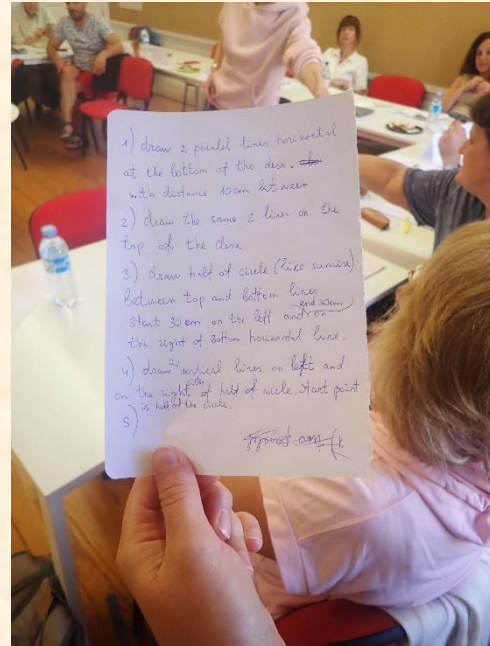 1) draw 2 paralel lines horizontal
at the bottom of the desk.
with distance 10cm between
2) draw the same 2 lines on the
top of the desk
3) draw half of circle (like sunrise)
Between top and bottom lines
start 30 cm on the left and on
end 30cm
the right of bottom horizontal line.
4) draw 2 vertical lines on left and
on the right of half of circle. Start point
with
is half of the circle.
5)